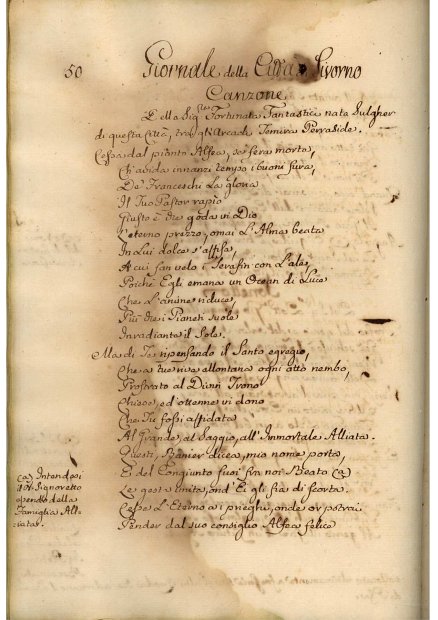 50
Giornale della Città di Livorno
Canzone
Della Sig.ra Fortunata Fantastici nata Sulgher
di questa Città, tra gli Arcadi Temira Parraside.
Cessa dal pianto Alfea, se fera morte,
Ch'avida innanzi tempo i buoni fura,
De' Franceschi La gloria
Il Tuo Pastor rapio
Giusto è che goda in Dio
L'eterno prezzo, omai L'Alma beata
In Lui dolce s'affisa,
A cui fan velo i Serafin con L'ale,
Poichè Egli emana un Ocean di Luce
Che L'anime riduce,
Più che i Pianeti suole
Inradiante il Sole.
Ma di Te ripensando il Santo egregio,
Che a tue rive allontana ogni atro nembo,
Prostrato al Divin Trono
Chiese, ed ottenne in dono
Che Tu fossi affidata
Al Grande, al Saggio, all'Immortale Alliata.
Questi, Ranier dicea, mio nome porta,
E del Congiunto fuoi fra noi Beato (a)
Le gesta unite, ond'Ei gli sia di scorta.
Cesse L'Eterno a i prieghi, onde or potrai
Pender dal suo consiglio Alfea felice
(a) Intendesi
per Signoretto
essendo della
Famiglia Alliata.